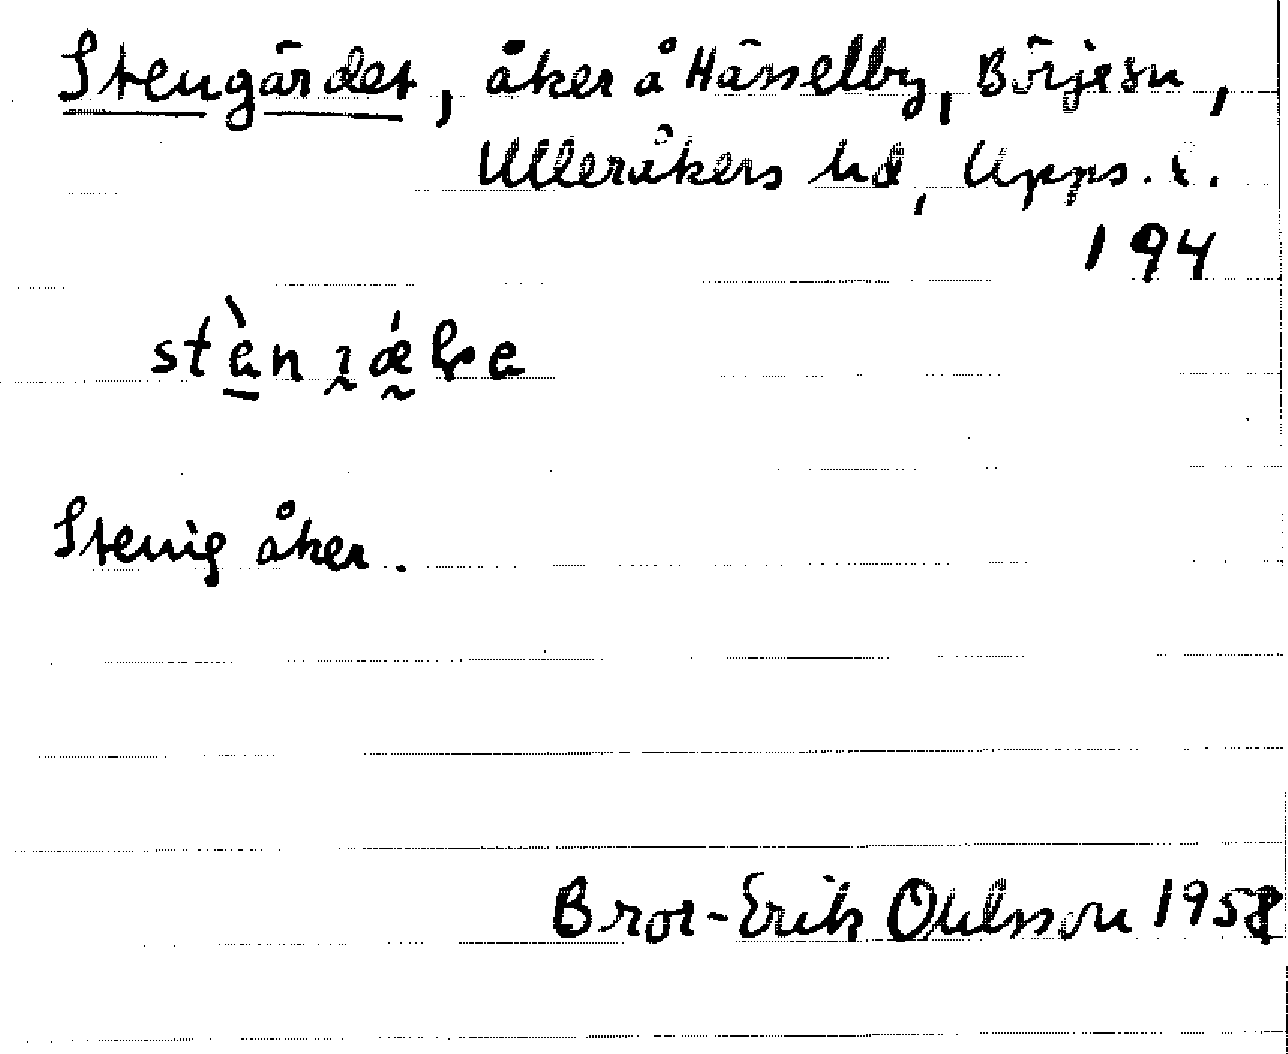 Stengärdet, åker å Hässelby, Börje sn,
Ulleråkers hd, Upps. l.
194
Stenig åker.
Bror-Erik Ohlsson 1958